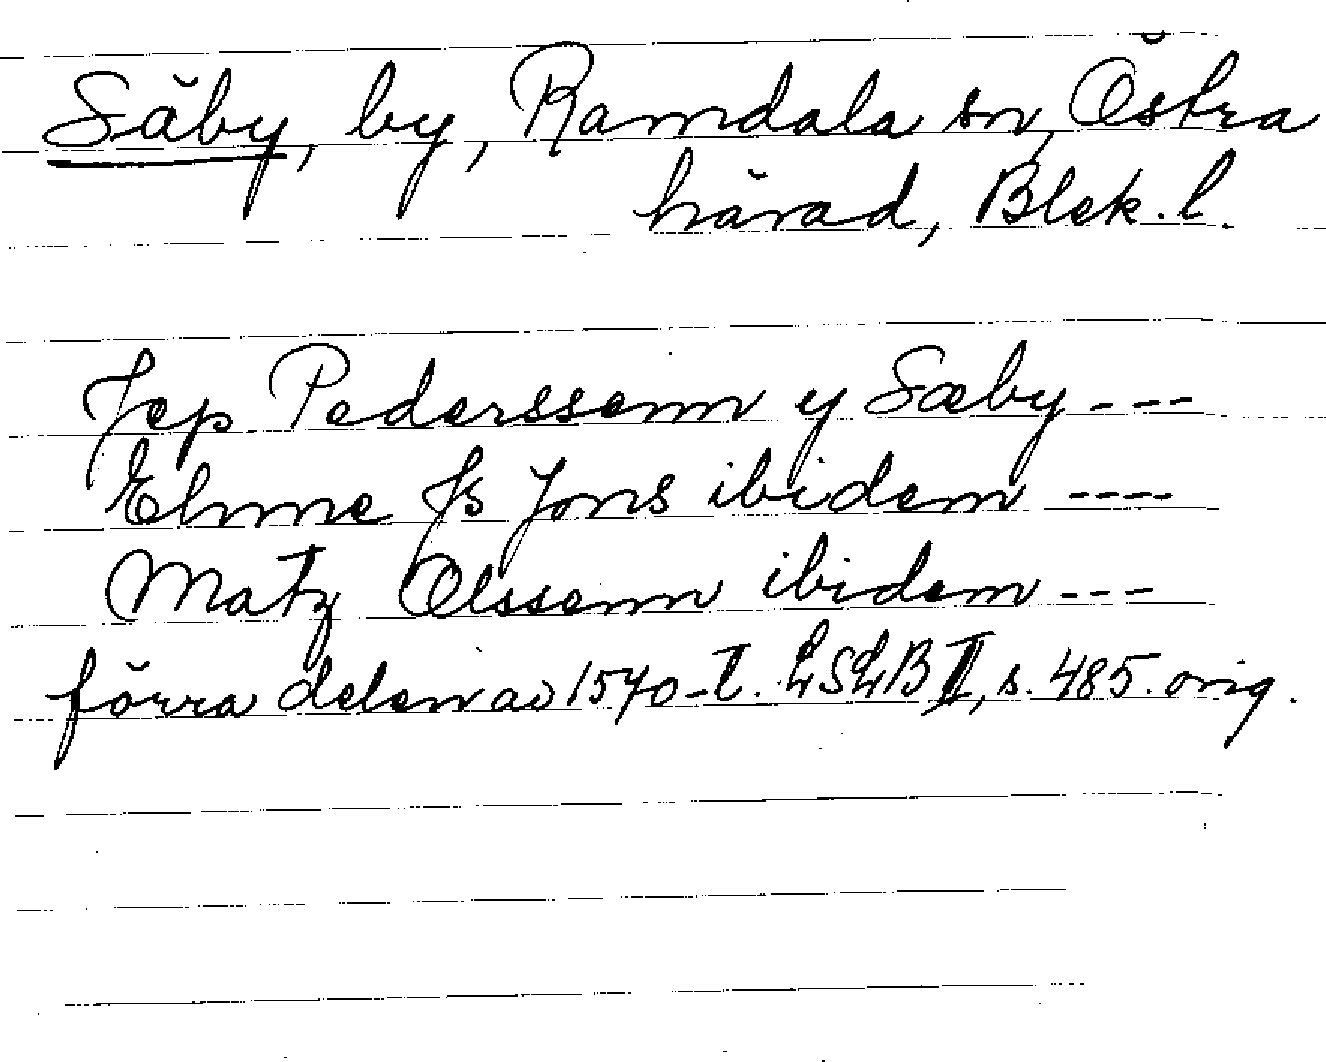 Säby, by, Ramdala sn, Östra
härad, Blek. l.
Jep Pederssenn y Sæby ---
Elnne Js Jons ibidem ----
Matz Olssenn ibidem ---
förra delen av 1570-t. LSLB II, s. 485. orig.